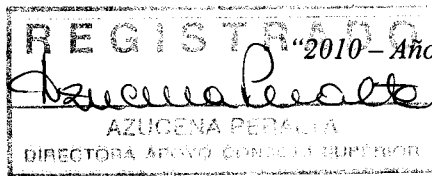 REGISTRADO
"2010 – Año
Azucena Peralta
AZUCENA PERALTA
DIRECTORA APOYO CONSEJO SUPERIOR